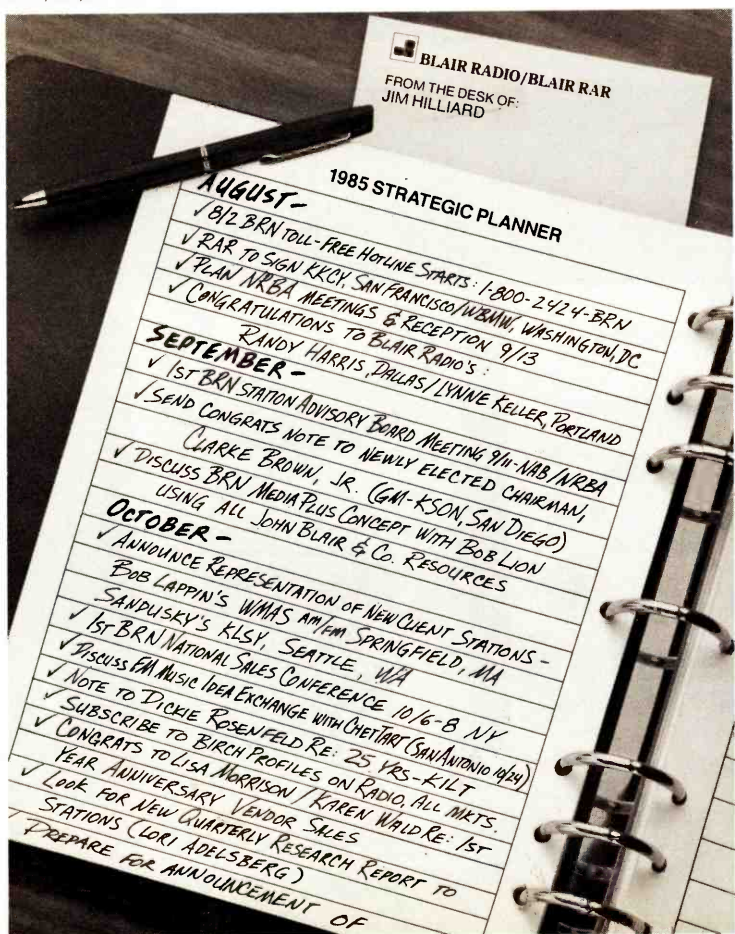 BLAIR RADIO/BLAIR RAR
FROM THE DESK OF:
JIM HILLIARD
1985 STRATEGIC PLANNER
AUGUST-
✓ 8/2 BRN TOLL-FREE HOTLINE STARTS: 1-800-2424-BRN
✓ RAR TO SIGN KKCY, SAN FRANCISCO/WBMW, WASHINGTON, DC
✓ PLAN NRBA MEETINGS & RECEPTION 9/13
✓ CONGRATULATIONS TO BLAIR RADIO'S:
RANDY HARRIS, DALLAS/LYNNE KELLER, PORTLAND
SEPTEMBER-
✓ 1ST BRN STATION ADVISORY BOARD MEETING 9/11-NAB/NRBA
✓ SEND CONGRATS NOTE TO NEWLY ELECTED CHAIRMAN,
CLARKE BROWN, JR. (GM-KSON, SAN DIEGO)
✓ DISCUSS BRN MEDIA PLUS CONCEPT WITH BOB LION
USING ALL JOHN BLAIR & CO. RESOURCES
OCTOBER-
✓ ANNOUNCE REPRESENTATION OF NEW CLIENT STATIONS -
BOB LAPPIN'S WMAS AM/FM SPRINGFIELD, MA
SANDUSKY'S KLSY, SEATTLE, WA
✓ 1ST BRN NATIONAL SALES CONFERENCE 10/6-8 NY
✓ DISCUSS FM MUSIC IDEA EXCHANGE WITH CHET TART (SAN ANTONIO 10/24)
✓ NOTE TO DICKIE ROSENFELD RE: 25 YRS-KILT
✓ SUBSCRIBE TO BIRCH PROFILES ON RADIO, ALL MKTS.
✓ CONGRATS TO LISA MORRISON/KAREN WALD RE: 1ST
YEAR ANNIVERSARY VENDOR SALES
✓ LOOK FOR NEW QUARTERLY RESEARCH REPORT TO
STATIONS (LORI ADELSBERG)
PREPARE FOR ANNOUNCEMENT OF